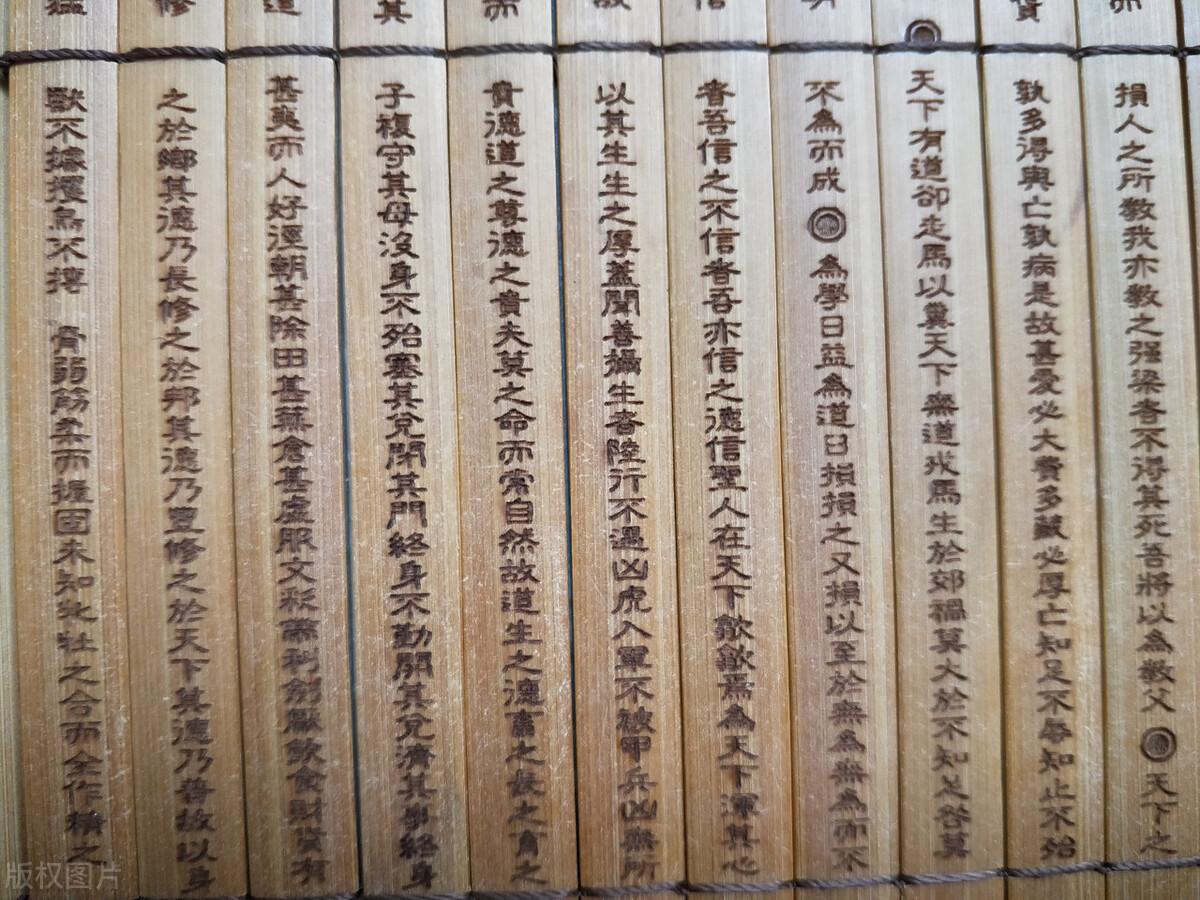 而損人之所教我亦教之强梁者不得其死吾將以為教父天下之
貨孰多得與亡孰病是故甚愛必大費多藏必厚亡知足不辱知止不殆
天下有道卻走馬以糞天下無道戎馬生於郊禍莫大於不知足咎莫
不為而成為學日益為道日損損之又損以至於無為無為而不
信者吾信之不信者吾亦信之德信聖人在天下歙歙焉為天下渾其心
故以其生生之厚蓋聞善攝生者陸行不遇凶虎入軍不被甲兵凶無所
而貴德道之尊德之貴夫莫之命而常自然故道生之德畜之長之育之
其子複守其母沒身不殆塞其兌閉其門終身不勤開其兌濟其事終身
道甚夷而人好逕朝甚除田甚蕪倉甚虛服文彩帶利劍厭飲食財貨有
修之於鄉其德乃長修之於邦其德乃豐修之於天下其德乃普故以身
猛獸不據攫鳥不搏 骨弱筋柔而握固未知牝牡之合而全作精之
版权图片